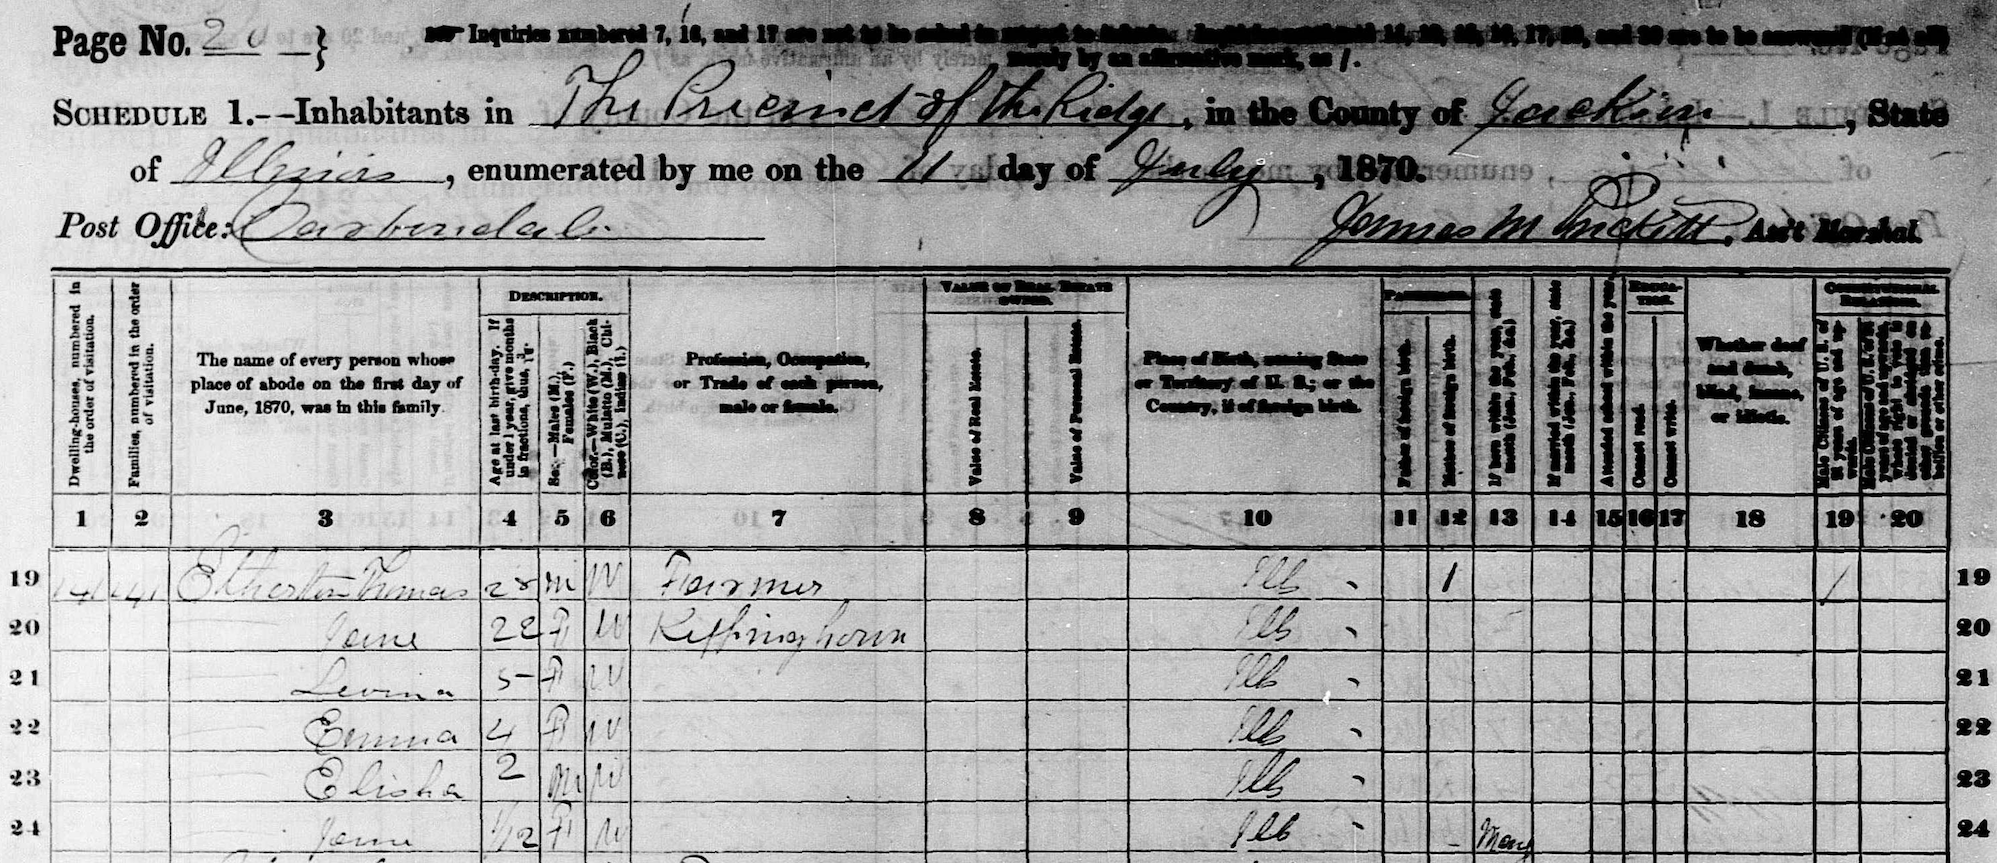 Page No. 20 }
Inquiries numbered 7, 16, and 17 are not to be asked in respect to infants. Inquiries numbered 11, 12, 15, 16, 17, 19, and 20 are to be answered (if at all)
merely by an affirmative mark, as /.
SCHEDULE 1.--Inhabitants in The Precinct of the Ridge, in the County of Jackson, State
of Illinois, enumerated by me on the 11 day of July, 1870.
Post Office: Carbondale James M Prickett, Ass't Marshal.
Dwelling-houses, numbered in the order of visitation.
Families, numbered in the order of visitation.
The name of every person whose place of abode on the first day of June, 1870, was in this family.
DESCRIPTION.
Age at last birth-day. If under 1 year, give months in fractions, thus, 3/12
Sex.—Males (M.), Females (F.)
Color.—White (W.), Black (B.), Mulatto (M.), Chinese (C.), Indian (I.)
Profession, Occupation, or Trade of each person, male or female.
VALUE OF REAL ESTATE OWNED.
Value of Real Estate.
Value of Personal Estate.
Place of Birth, naming State or Territory of U. S.; or the Country, if of foreign birth.
PARENTAGE.
Father of foreign birth.
Mother of foreign birth.
If born within the year, state month (Jan., Feb., &c.)
If married within the year, state month (Jan., Feb., &c.)
Attended school within the year.
EDUCATION.
Cannot read.
Cannot write.
Whether deaf and dumb, blind, insane, or idiotic.
CONSTITUTIONAL RELATIONS.
Male Citizens of U. S. of 21 years of age and upwards.
Male Citizens of U. S. of 21 years of age and upwards, whose right to vote is denied or abridged on other grounds than rebellion or other crime.
1 2 3 4 5 6 7 8 9 10 11 12 13 14 15 16 17 18 19 20
19 141 141 Etherton Thomas 28 M W Farmer Ills 1 / 19
20 Jane 22 F W Keffing hown Ills 20
21 Levina 5 F W Ills 21
22 Emma 4 F W Ills 22
23 Elisha 2 M W Ills 23
24 Jane 1/12 F W Ills May 24